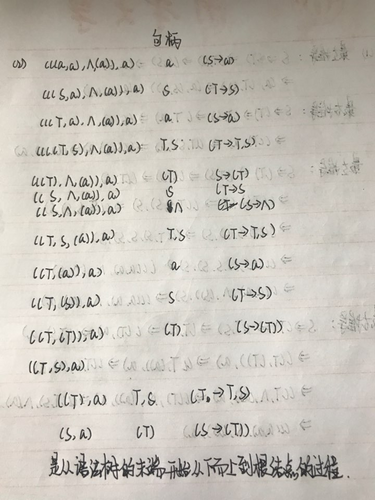 句柄
(2) (((a,a),∧,(a)),a) a (S→a)
(((S,a),∧,(a)),a) S (T→S)
(((T,a),∧,(a)),a) a (S→a)
(((T,S),∧,(a)),a) T,S (T→T,S)
(((T),∧,(a)),a) (T) (S→(T))
((S,∧,(a)),a) S (T→S
((S,∧,(a)),a) ∧ (S→∧)
((T,S,(a)),a) T,S (T→T,S)
((T,(a)),a) a (S→a)
((T,(S)),a) S (T→S)
((T,(T)),a) (T) (S→(T))
((T,S),a)
((T),a) T,S (T→T,S)
(S,a) (T) (S→(T))
是从语法树的末端开始从下而上到根结点的过程.